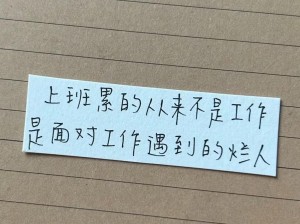 上班累的从来不是工作
是面对工作遇到的烂人